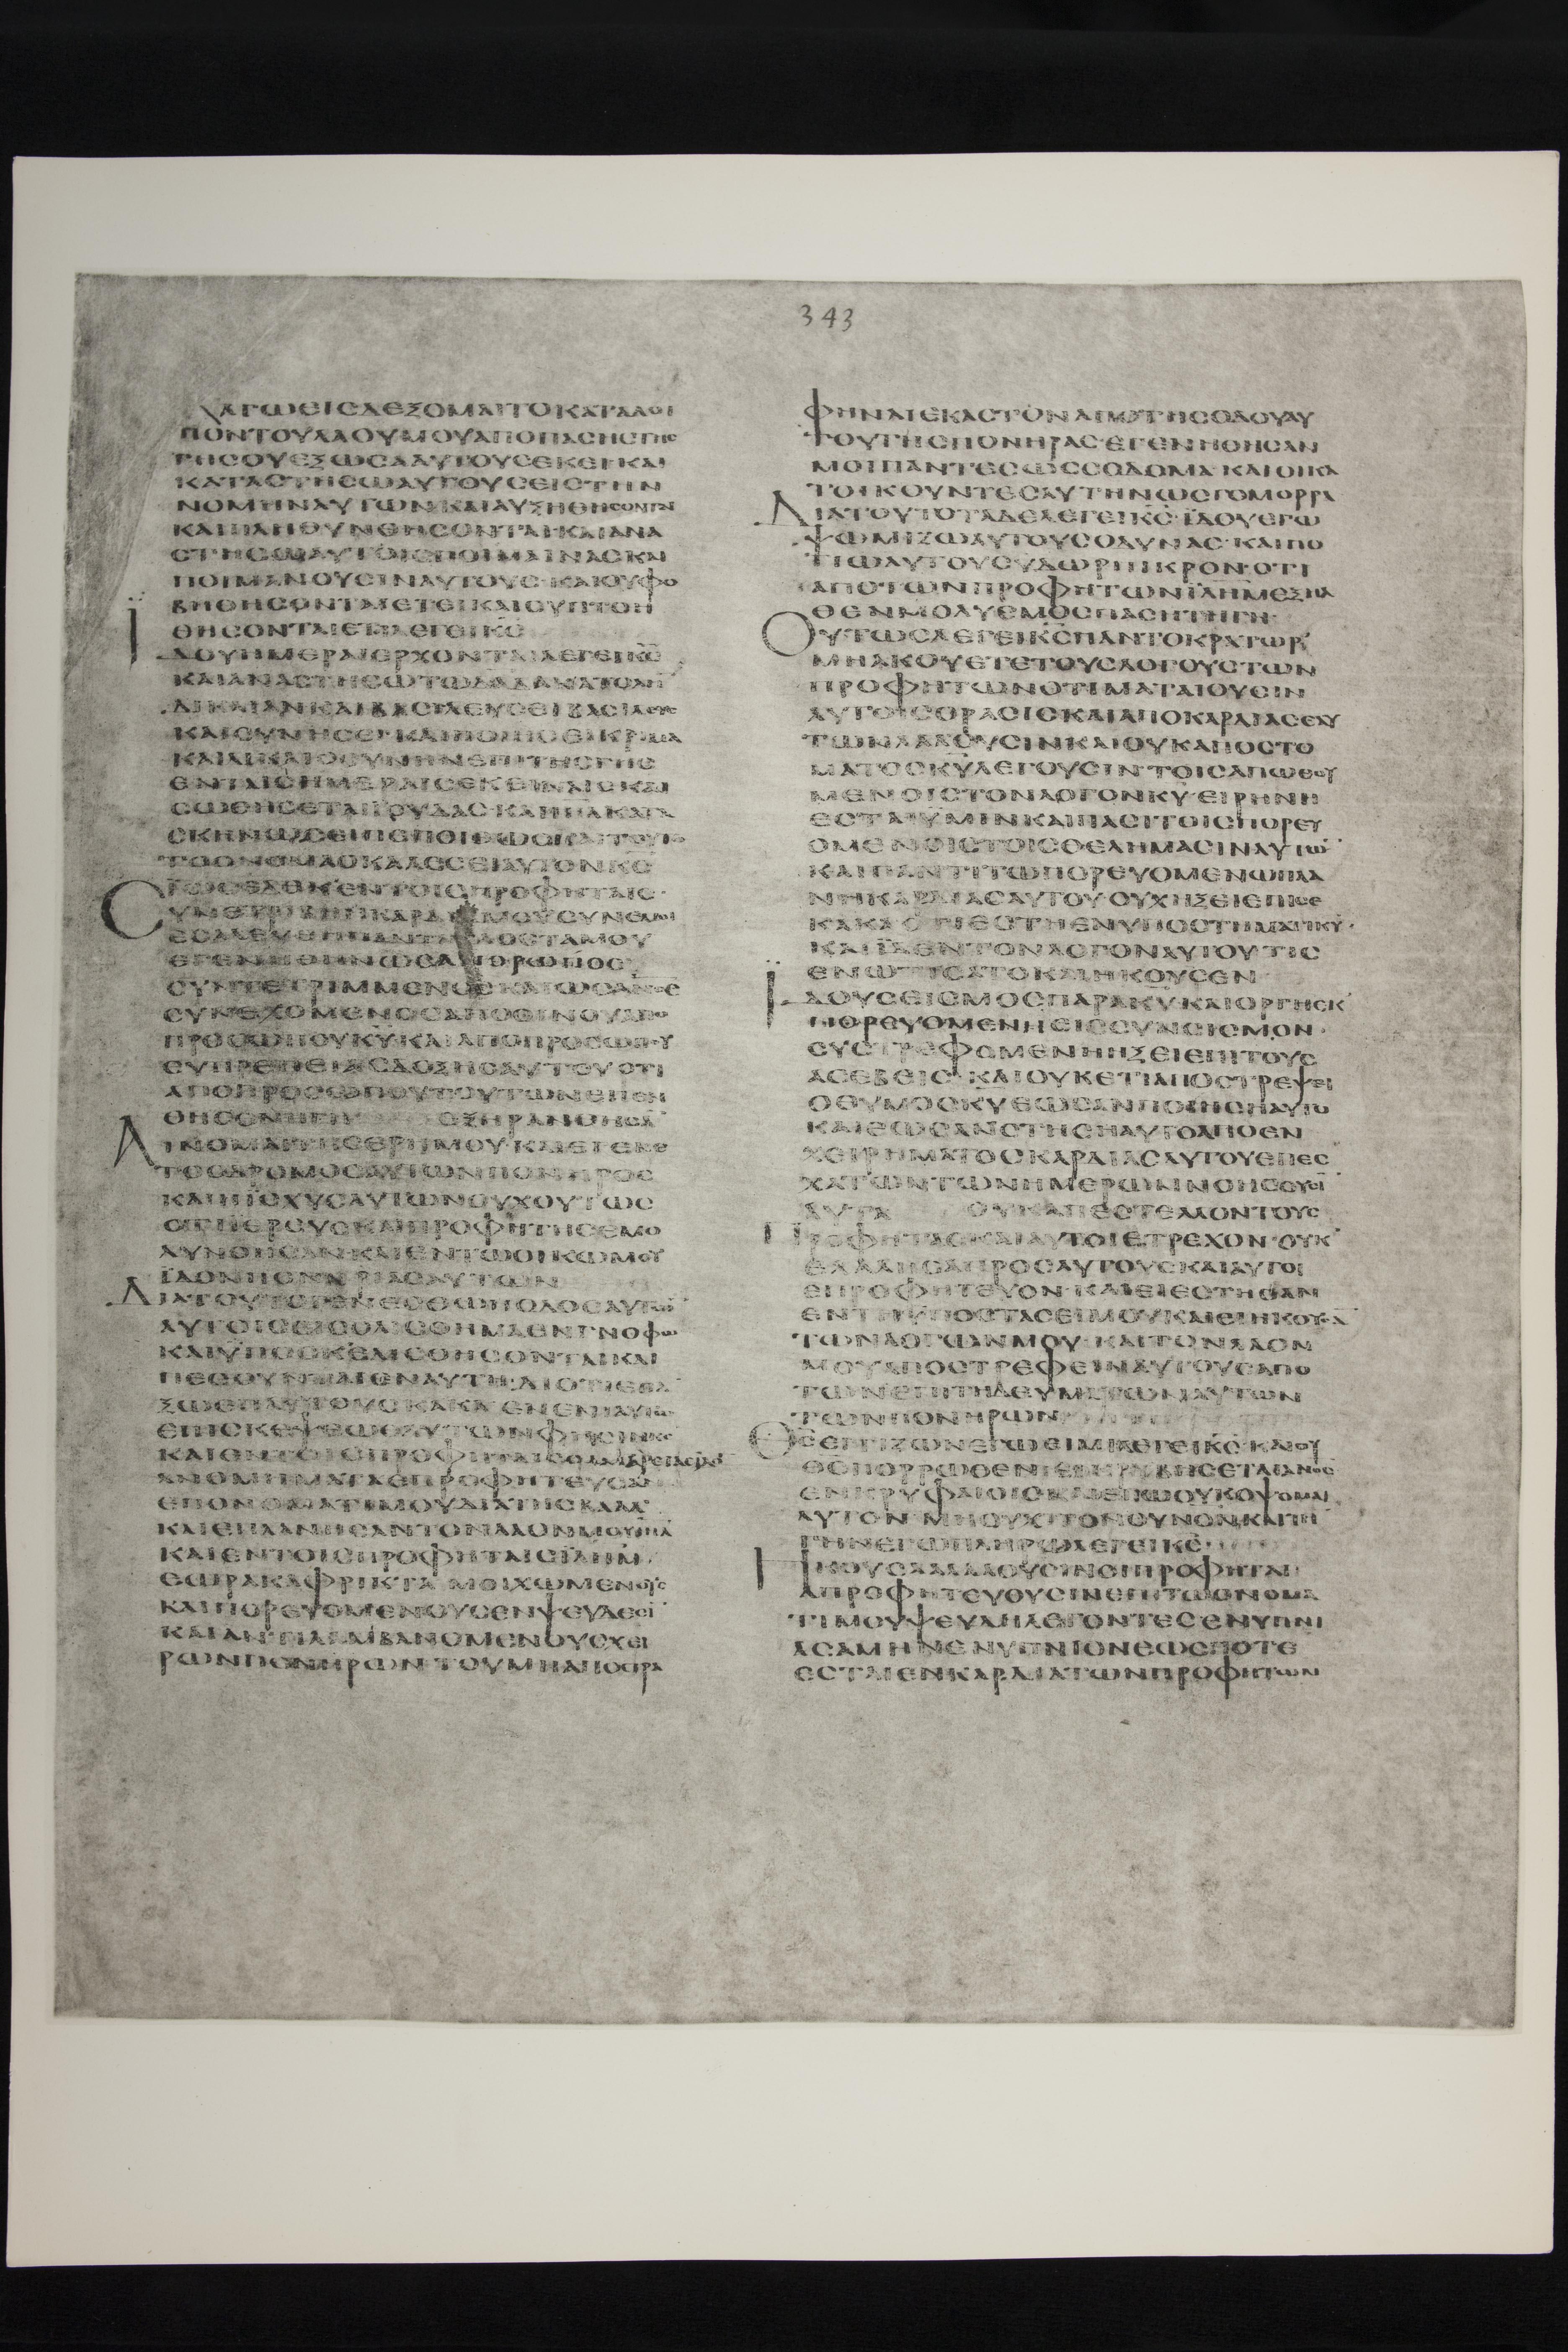 343
ΚΑΓΩΕΙCΔΕΞΟΜΑΙΤΟΚΑΤΑΛΟΙ
ΠΟΝΤΟΥΛΑΟΥΜΟΥΑΠΟΠΑCΗCΓΗC
ΓΗCΟΥΕΞΩCΑΑΥΤΟΥCΕΚΕΙΚΑΙ
ΚΑΤΑCΤΗCΩΑΥΤΟΥCΕΙCΤΗΝ
ΝΟΜΗΝΑΥΤΩΝΚΑΙΑΥΞΗΘΗCΟΝΤΑΙ
ΚΑΙΠΛΗΘΥΝΘΗCΟΝΤΑΙ·ΚΑΙΑΝΑ
CΤΗCΩΑΥΤΟΙCΠΟΙΜΑΙΝΑCΚΑΙ
ΠΟΙΜΑΝΟΥCΙΝΑΥΤΟΥC·ΚΑΙΟΥΦΟ
ΒΗΘΗCΟΝΤΑΙΕΤΕΙΚΑΙΟΥΠΤΟΗ
ΘΗCΟΝΤΑΙΕΤΙΛΕΓΕΙΚC
ΪΔΟΥΗΜΕΡΑΙΕΡΧΟΝΤΑΙΛΕΓΕΙΚC
ΚΑΙΑΝΑCΤΗCΩΤΩΔΑΔΑΝΑΤΟΛΗ
ΔΙΚΑΙΑΝΚΑΙΒΑCΙΛΕΥCΕΙΒΑCΙΛΕΥC
ΚΑΙCΥΝΗCΕΙ·ΚΑΙΠΟΙΗCΕΙΚΡΙΜΑ
ΚΑΙΔΙΚΑΙΟCΥΝΗΝΕΠΙΤΗCΓΗC
ΕΝΤΑΙCΗΜΕΡΑΙCΕΚΕΙΝΑΙCΚΑΙ
CΩΘΗCΕΤΑΙΪΟΥΔΑC·ΚΑΙΙΗΛΚΑΤΑ
CΚΗΝΩCΕΙΠΕΠΟΙΘΩCΚΑΙΤΟΥΤΟ
ΤΟΟΝΟΜΑΟΚΑΛΕCΕΙΑΥΤΟΝΚC
ΪΩCΕΔΕΚΕΝΤΟΙCΠΡΟΦΗΤΑΙC·
CΥΝΕΤΡΙΒΗΗΚΑΡΔΙΑΜΟΥCΥΝΕΜΟΙ
ΕCΑΛΕΥΘΗΠΑΝΤΑΤΑΟCΤΑΜΟΥ
ΕΓΕΝΗΘΗΝΩCΑΝΘΡΩΠΟC
CΥΝΤΕΤΡΙΜΜΕΝΟCΚΑΙΩCΑΝΟC
CΥΝΕΧΟΜΕΝΟCΑΠΟΟΙΝΟΥΑΠΟ
ΠΡΟCΩΠΟΥΚΥΚΑΙΑΠΟΠΡΟCΩΠΟΥ
ΕΥΠΡΕΠΕΙΑCΔΟΞΗCΑΥΤΟΥΟΤΙ
ΑΠΟΠΡΟCΩΠΟΥΤΟΥΤΩΝΕΠΕΝ
ΘΗCΕΝΗΓΗ ΕΞΗΡΑΝΘΗCΑΝ
ΑΙΝΟΜΑΙΤΗCΕΡΗΜΟΥ·ΚΑΙΕΓΕΝΕ
ΤΟΟΔΡΟΜΟCΑΥΤΩΝΠΟΝΗΡΟC
ΚΑΙΗΪCΧΥCΑΥΤΩΝΟΥΧΟΥΤΩC
ΟΤΙΪΕΡΕΥCΚΑΙΠΡΟΦΗΤΗCΕΜΟ
ΛΥΝΘΗCΑΝ·ΚΑΙΕΝΤΩΟΙΚΩΜΟΥ
ΪΔΟΝΠΟΝΗΡΙΑCΑΥΤΩΝ
ΔΙΑΤΟΥΤΟΓΕΝΕCΘΩΗΟΔΟCΑΥΤΩΝ
ΑΥΤΟΙCΕΙCΟΛΙCΘΗΜΑΕΝΓΝΟΦΩ
ΚΑΙΫΠΟCΚΕΛΙCΘΗCΟΝΤΑΙΚΑΙ
ΠΕCΟΥΝΤΑΙΕΝΑΥΤΗ·ΔΙΟΤΙΕΠΑ
ΞΩΕΠΑΥΤΟΥCΚΑΚΑΕΝΕΝΙΑΥΤΩ
ΕΠΙCΚΕΨΕΩCΑΥΤΩΝΦΗCΙΝΚC
ΚΑΙΕΝΤΟΙCΠΡΟΦΗΤΑΙCCΑΜΑΡΕΙΑCΪΔΟΝ
ΑΝΟΜΗΜΑΤΑΕΠΡΟΦΗΤΕΥCΑΝ
ΕΠΟΝΟΜΑΤΙΜΟΥΔΙΑΤΗCΒΑΑΛ
ΚΑΙΕΠΛΑΝΗCΑΝΤΟΝΛΑΟΝΜΟΥΙΗΛ
ΚΑΙΕΝΤΟΙCΠΡΟΦΗΤΑΙCΪΛΗΜ
ΕΩΡΑΚΑΦΡΙΚΤΑ·ΜΟΙΧΩΜΕΝΟΥC
ΚΑΙΠΟΡΕΥΟΜΕΝΟΥCΕΝΨΕΥΔΕCΙ
ΚΑΙΑΝΤΙΛΑΜΒΑΝΟΜΕΝΟΥCΧΕΙ
ΡΩΝΠΟΝΗΡΩΝΤΟΥΜΗΑΠΟCΤΡΑ
ΦΗΝΑΙΕΚΑCΤΟΝΑΠΟΤΗCΟΔΟΥΑΥ
ΤΟΥΤΗCΠΟΝΗΡΑC·ΕΓΕΝΗΘΗCΑΝ
ΜΟΙΠΑΝΤΕCΩCCΟΔΟΜΑ·ΚΑΙΟΙΚΑ
ΤΟΙΚΟΥΝΤΕCΑΥΤΗΝΩCΓΟΜΟΡΡΑ
ΔΙΑΤΟΥΤΟΤΑΔΕΛΕΓΕΙΚC·ΪΔΟΥΕΓΩ
ΨΩΜΙΖΩΑΥΤΟΥCΟΔΥΝΑC·ΚΑΙΠΟ
ΤΙΩΑΥΤΟΥCΥΔΩΡΠΙΚΡΟΝ·ΟΤΙ
ΑΠΟΤΩΝΠΡΟΦΗΤΩΝΪΛΗΜΕΞΗΛ
ΘΕΝΜΟΛΥCΜΟCΠΑCΗΤΗΓΗ·
ΟΥΤΩCΛΕΓΕΙΚCΠΑΝΤΟΚΡΑΤΩΡ
ΜΗΑΚΟΥΕΤΕΤΟΥCΛΟΓΟΥCΤΩΝ
ΠΡΟΦΗΤΩΝΟΤΙΜΑΤΑΙΟΥCΙΝ
ΑΥΤΟΙCΟΡΑCΙCΚΑΙΑΠΟΚΑΡΔΙΑCΕΑΥ
ΤΩΝΛΑΛΟΥCΙΝΚΑΙΟΥΚΑΠΟCΤΟ
ΜΑΤΟCΚΥΛΕΓΟΥCΙΝ·ΤΟΙCΑΠΩΘΟΥ
ΜΕΝΟΙCΤΟΝΛΟΓΟΝΚΥ·ΕΙΡΗΝΗ
ΕCΤΑΙΫΜΙΝΚΑΙΠΑCΙΤΟΙCΠΟΡΕΥ
ΟΜΕΝΟΙCΤΟΙCΘΕΛΗΜΑCΙΝΑΥΤΩΝ
ΚΑΙΠΑΝΤΙΤΩΠΟΡΕΥΟΜΕΝΩΠΛΑ
ΝΗΚΑΡΔΙΑCΑΥΤΟΥΟΥΧΗΞΕΙΕΠΙCΕ
ΚΑΚΑΟΤΙΕCΤΗΕΝΥΠΟCΤΗΜΑΤΙΚΥ·
ΚΑΙΪΔΕΝΤΟΝΛΟΓΟΝΑΥΤΟΥΤΙC
ΕΝΩΤΙCΑΤΟΚΑΙΗΚΟΥCΕΝ
ΪΔΟΥCΕΙCΜΟCΠΑΡΑΚΥ·ΚΑΙΟΡΓΗCΕΚ
ΠΟΡΕΥΟΜΕΝΗCΕΙCCΥΝCΙCΜΟΝ·
CΥCΤΡΕΦΟΜΕΝΗΗΞΕΙΕΠΙΤΟΥC
ΑCΕΒΕΙC·ΚΑΙΟΥΚΕΤΙΑΠΟCΤΡΕΨΕΙ
ΟΘΥΜΟCΚΥΕΩCΑΝΠΟΙΗCΗΑΥΤΟ
ΚΑΙΕΩCΑΝCΤΗCΗΑΥΤΟΑΠΟΕΝ
ΧΕΙΡΗΜΑΤΟCΚΑΡΔΙΑCΑΥΤΟΥΕΠΕC
ΧΑΤΩΝΤΩΝΗΜΕΡΩΝΝΟΗCΟΥCΙ
ΑΥΤΑ ΟΥΚΑΠΕCΤΕΛΛΟΝΤΟΥC
ΠΡΟΦΗΤΑCΚΑΙΑΥΤΟΙΕΤΡΕΧΟΝ·ΟΥΚ
ΕΛΑΛΗCΑΠΡΟCΑΥΤΟΥCΚΑΙΑΥΤΟΙ
ΕΠΡΟΦΗΤΕΥΟΝ·ΚΑΙΕΙΕCΤΗCΑΝ
ΕΝΤΗΫΠΟCΤΑCΕΙΜΟΥΚΑΙΕΙΗΚΟΥCΑ
ΤΩΝΛΟΓΩΝΜΟΥ·ΚΑΙΤΟΝΛΑΟΝ
ΜΟΥΑΠΟCΤΡΕΦΕΙΝΑΥΤΟΥCΑΠΟ
ΤΩΝΕΠΙΤΗΔΕΥΜΑΤΩΝΑΥΤΩΝ
ΤΩΝΠΟΝΗΡΩΝ
ΘCΕΓΓΙΖΩΝΕΓΩΕΙΜΙΛΕΓΕΙΚC·ΚΑΙΟΥ
ΘCΠΟΡΡΩΘΕΝΕΙΚΡΥΒΗCΕΤΑΙΑΝΟC
ΕΝΚΡΥΦΑΙΟΙCΚΑΙΕΓΩΟΥΚΟΨΟΜΑΙ
ΑΥΤΟΝ·ΜΗΟΥΧΙΤΟΝΟΥΝΟΝΚΑΙΤΗ
ΓΗΝΕΓΩΠΛΗΡΩΛΕΓΕΙΚC
ΗΚΟΥCΑΑΛΑΛΟΥCΙΝΟΙΠΡΟΦΗΤΑΙ
ΑΠΡΟΦΗΤΕΥΟΥCΙΝΕΠΙΤΩΟΝΟΜΑ
ΤΙΜΟΥΨΕΥΔΗΛΕΓΟΝΤΕCΕΝΥΠΝΙ
ΑCΑΜΗΝΕΝΥΠΝΙΟΝΕΩCΠΟΤΕ
ΕCΤΑΙΕΝΚΑΡΔΙΑΤΩΝΠΡΟΦΗΤΩΝ